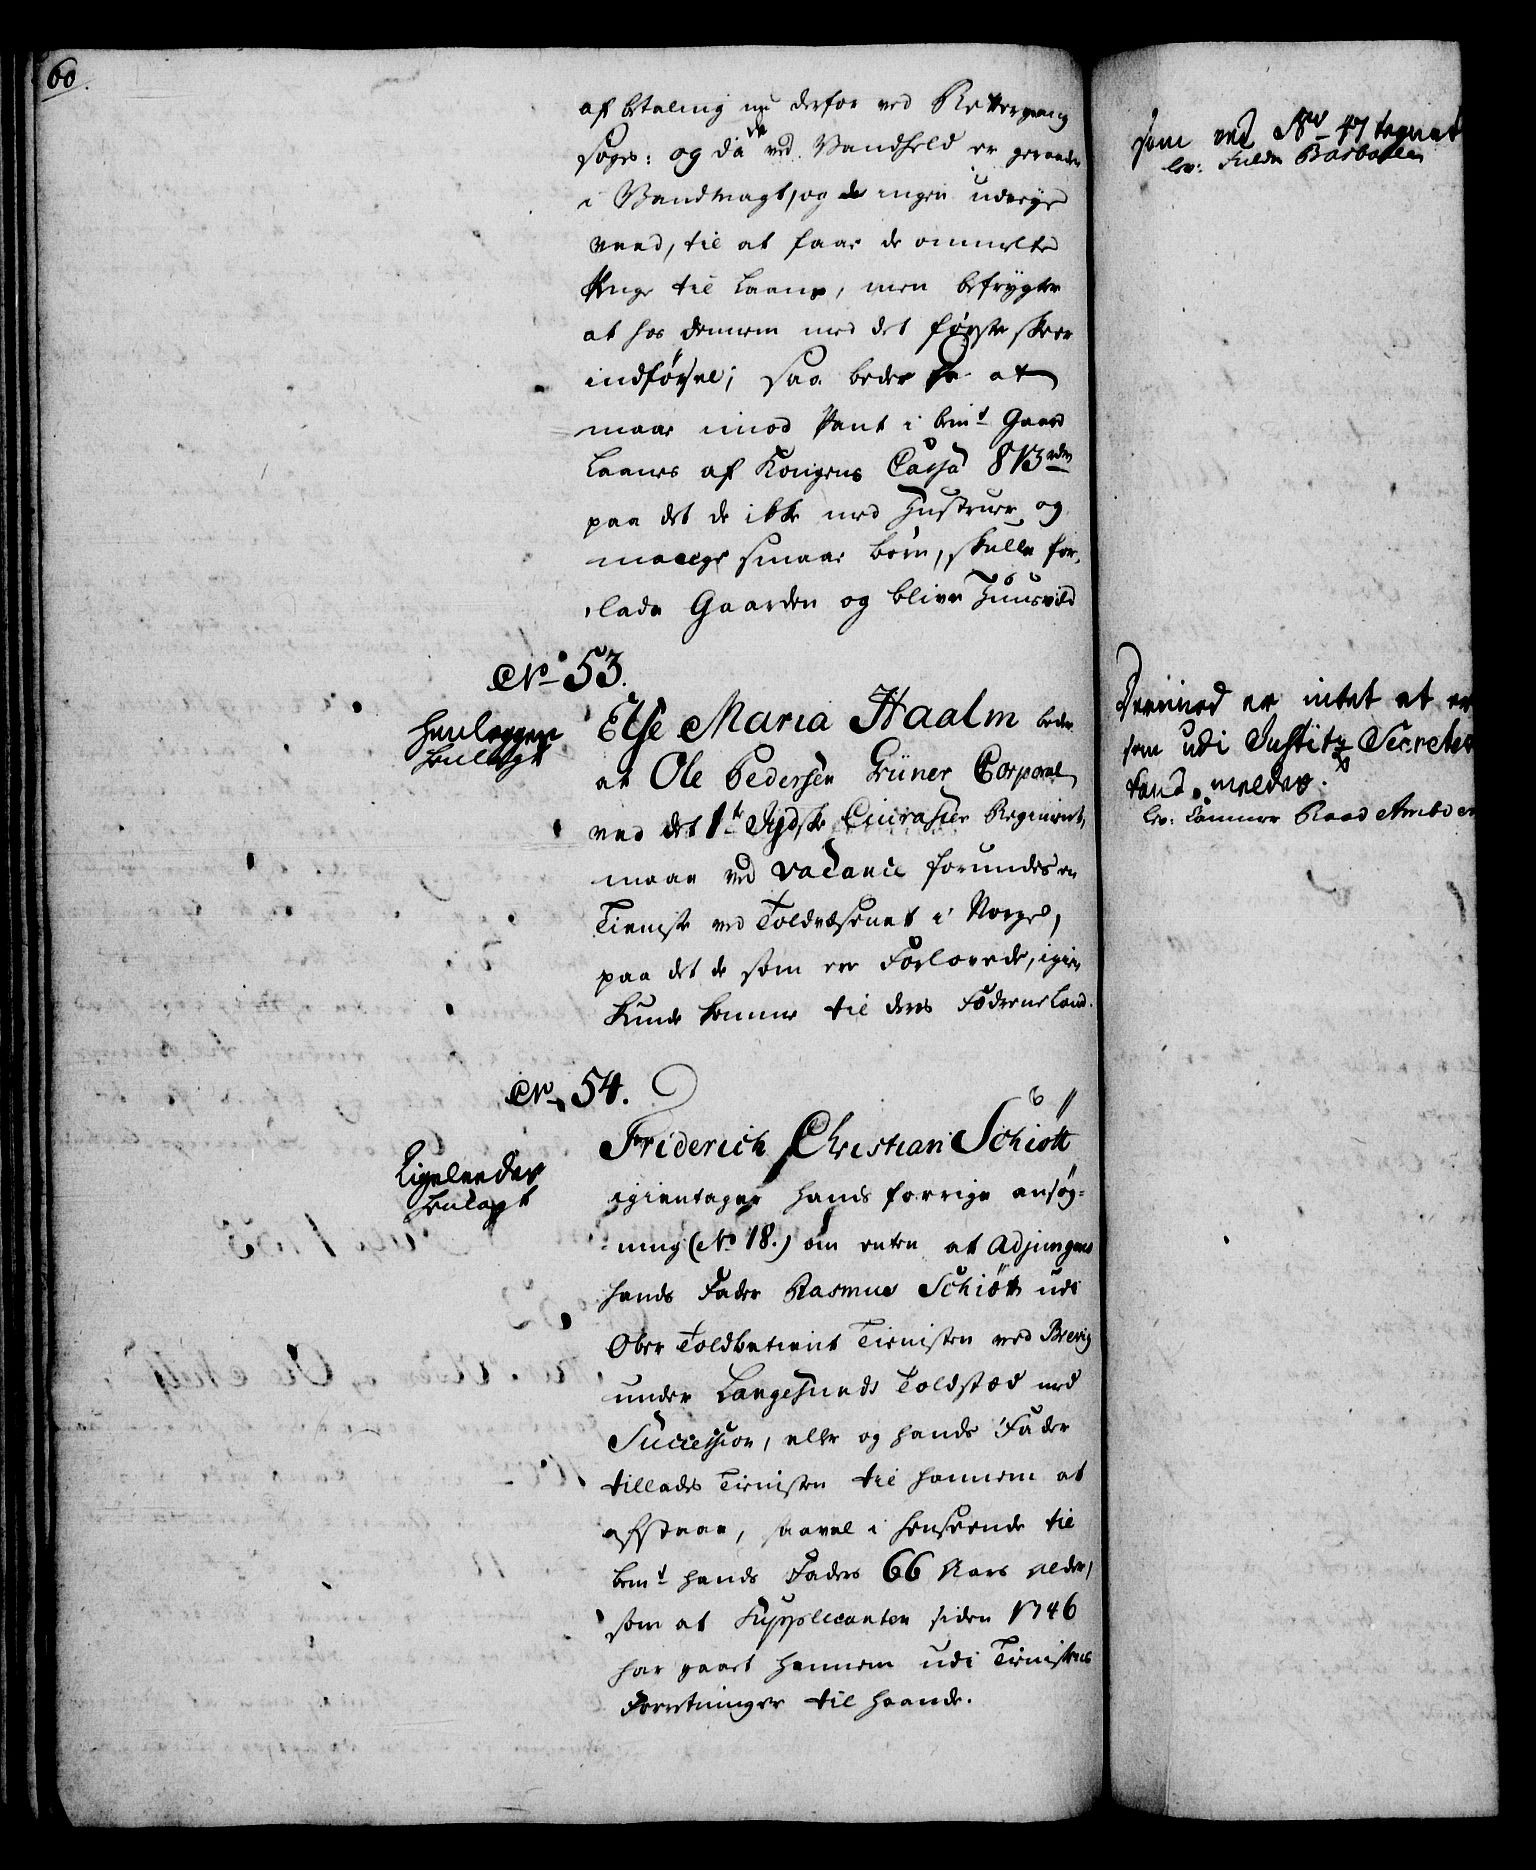 60.
af btaling nu derfor ved Rettergang
søges: og da de ved Vandheld er geraaden
i Vandmagt, og de ingen udveye
veed, til at faae de ommelte
Penge til Laans, men befrygter
at hos dennem med det første skeer
indførsel; saa beder de at
maae imod Pant i bemt Gaard
Laanes af Kongens Cassa 813 rdr
paa det de ikke med Hustruer og
mange smaae børn, skulle for-
lade Gaarden og blive Huusvild
No 53.
Henlegges
henlagt
Else Maria Haalm beder
at Ole Pedersen Grüner Corporal
ved det 1te Jydske Cuirasier Regiment,
maae ved vacance forundes en
Tieniste ved Toldvæsenet i Norge,
paa det de som ere Forlovede, igien
kunde komme til deres Føderneland.
No 54.
Ligeleedes
henlagt
Friderich Christian Schiøtt
igientager hands forrige ansøg-
ning (No 18.) om enten at Adjungeres
hands Fader Rasmus Schiøtt udi
Ober Toldbetient Tienisten ved Brevig
under Langesunds Toldsted med
Succession, eller og hands Fader
tillades Tienisten til hannem at
afstaae, saavel i henseende til
bemt hands Faders 66 Aars alder,
som at Supplicanten siden 1746
har gaaet hannem udi Tienistens
Forretninger til haande.
som ved No 47 tegnet
lev: Fuldm
Derimod er intet at er
som udi Justitz Secreter
fand meldes.
lev: Cammer Raad